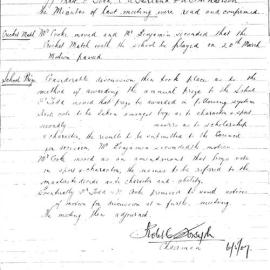 The Minutes of last meeting were read and confirmed.
Cricket Match Mr Cooke moved and Mr Benjamin seconded that the
Cricket Match with the school be played on 20th March
Motion passed
School Prize Considerable discussion then took place as to the
method of awarding the annual prize to the School
Mr Todd moved that prize be awarded on following system
first vote to be taken amongst boys as to character & sport
secondly masters as to scholarship
& character, the results to be submitted to the Council
for decision. Mr Benjamin seconded the motion
Mr Cook moved as an amendment that boys vote
on sport & character, the names to be referred to the
masters to decide as to character and ability.
Eventually Mr Todd & Mr Cook promised to send notices
of motion for discussion at a further meeting.
The meeting then adjourned.
Chairman